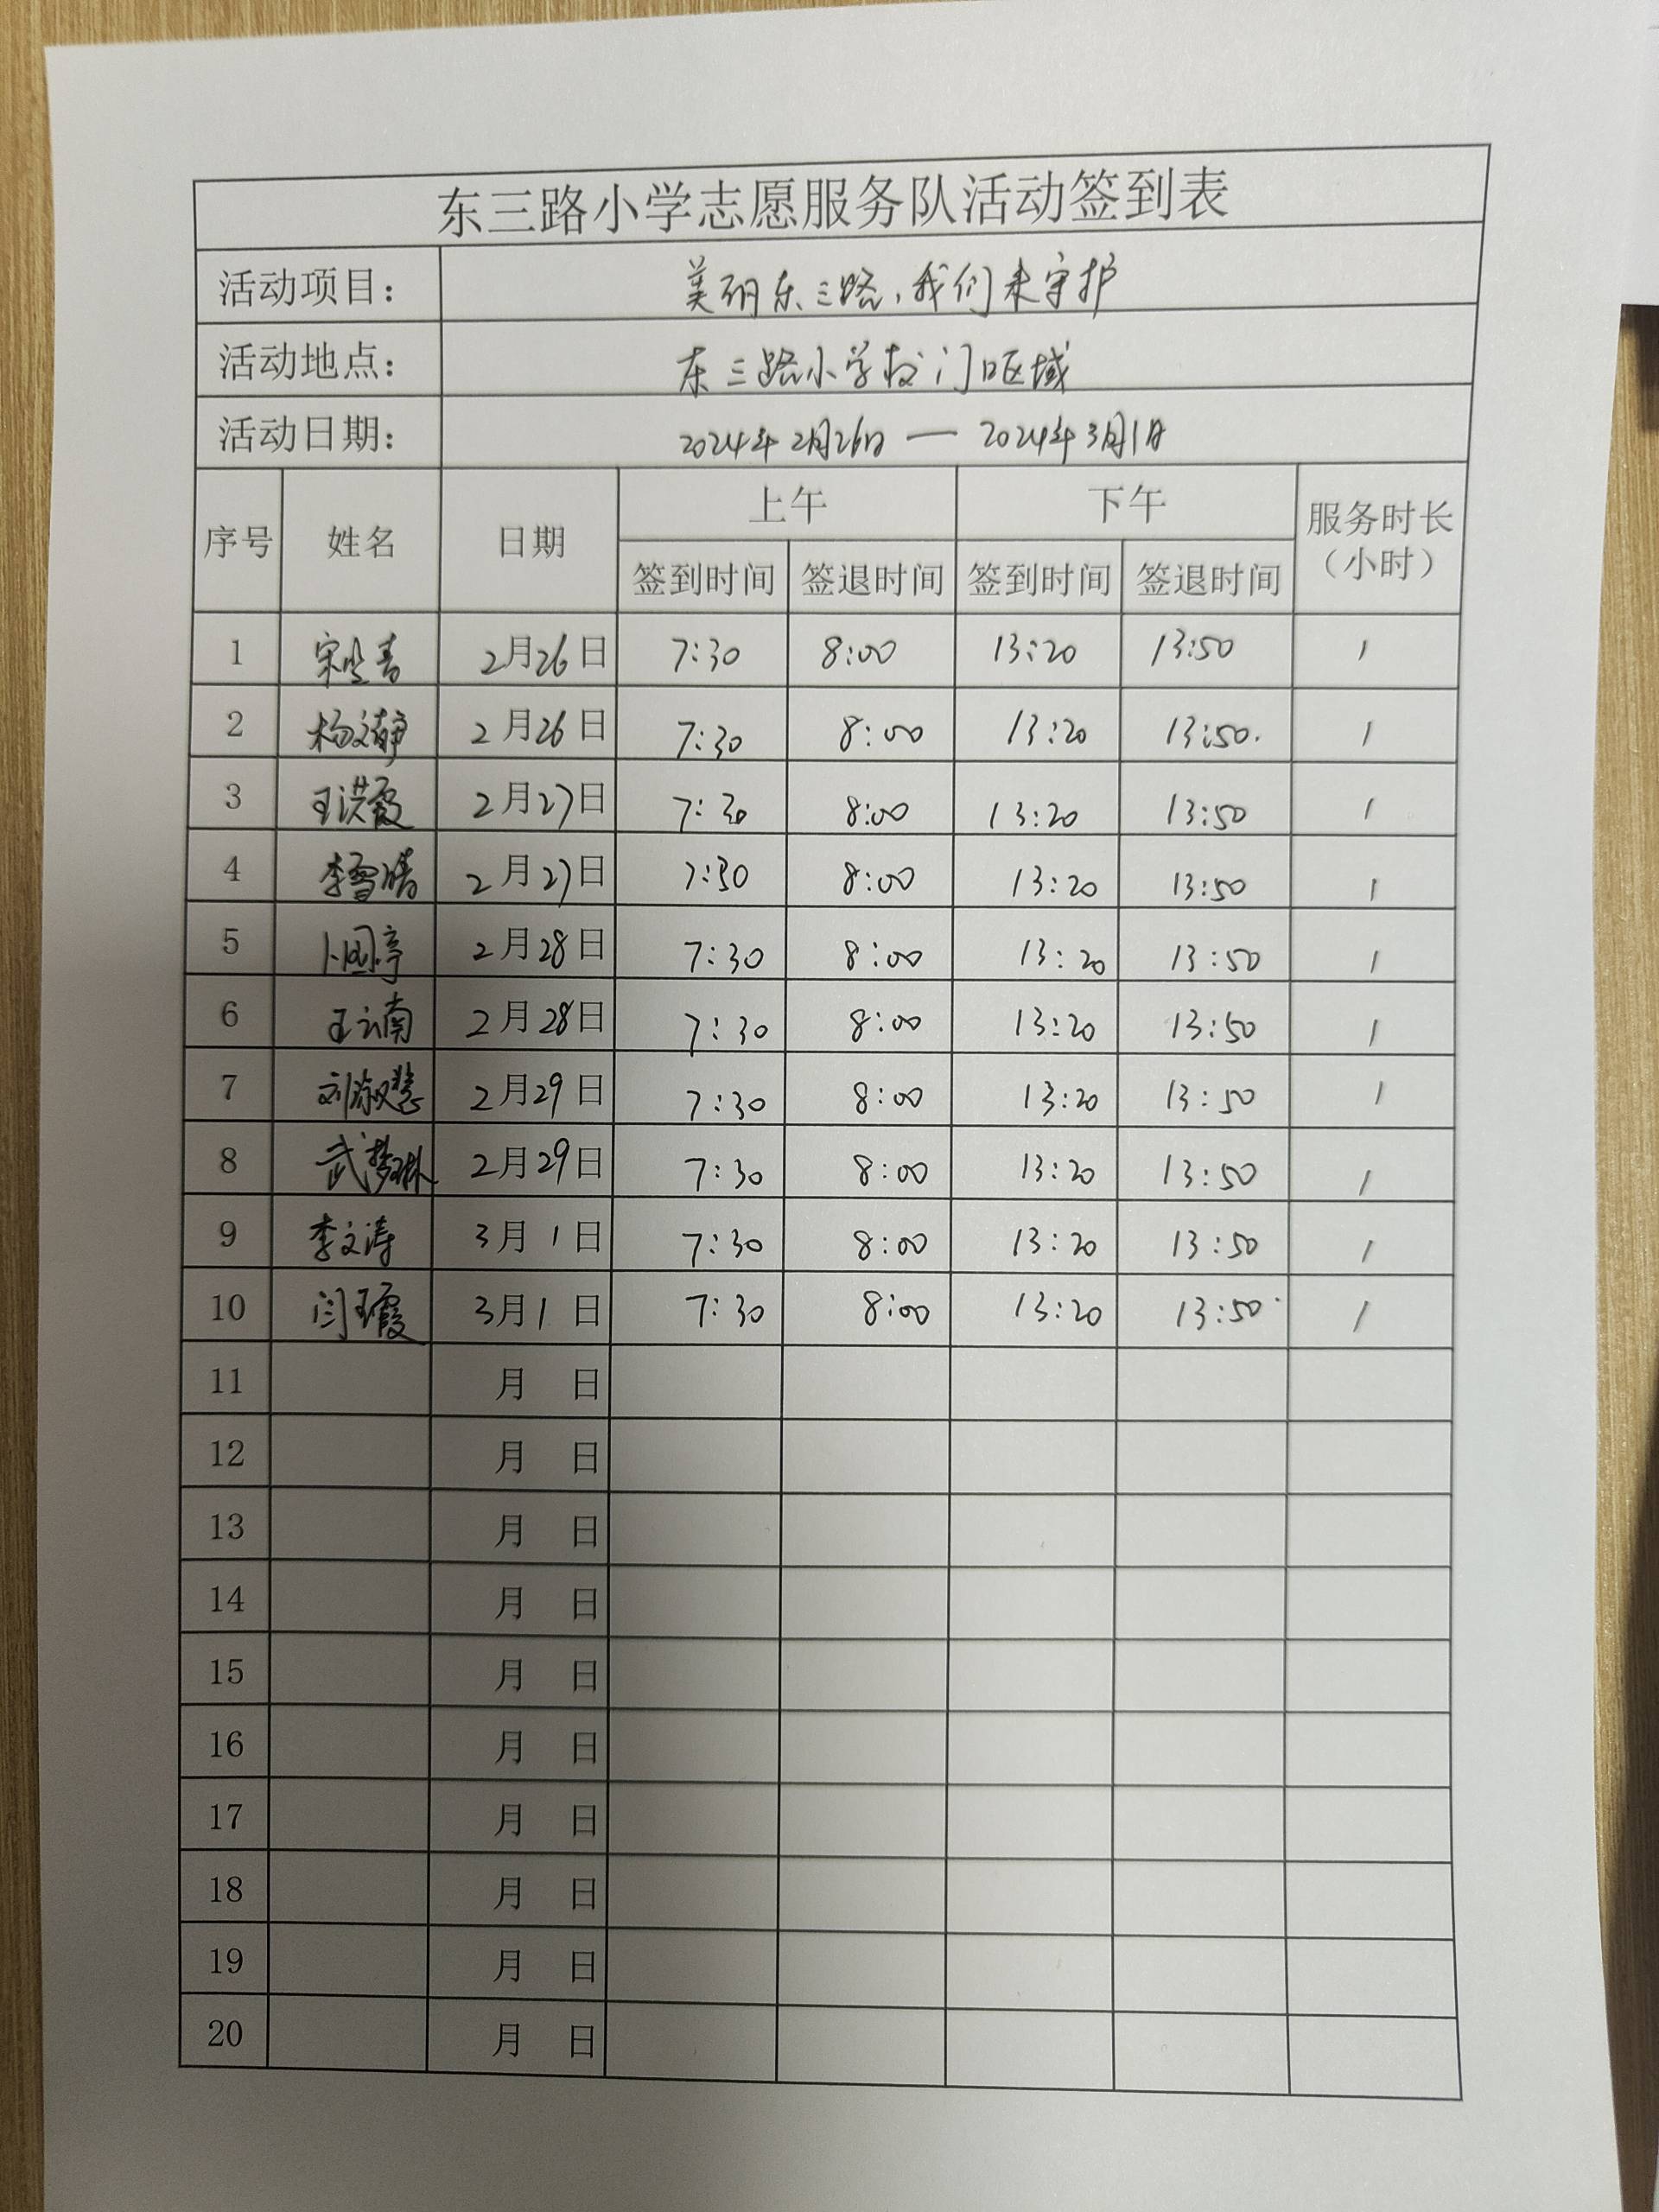 东三路小学志愿服务队活动签到表
活动项目： 美丽东三路，我们来守护
活动地点： 东三路小学校门口区域
活动日期： 2024年2月26日 — 2024年3月1日
序号 姓名 日期 上午 下午 服务时长（小时）
签到时间 签退时间 签到时间 签退时间
1 2月26日 7:30 8:00 13:20 13:50 1
2 杨文静 2月26日 7:30 8:00 13:20 13:50 1
3 王洪霞 2月27日 7:30 8:00 13:20 13:50 1
4 李雪晴 2月27日 7:30 8:00 13:20 13:50 1
5 卜国亭 2月28日 7:30 8:00 13:20 13:50 1
6 王云南 2月28日 7:30 8:00 13:20 13:50 1
7 刘淑慧 2月29日 7:30 8:00 13:20 13:50 1
8 武梦琳 2月29日 7:30 8:00 13:20 13:50 1
9 李文涛 3月1日 7:30 8:00 13:20 13:50 1
10 闫玉霞 3月1日 7:30 8:00 13:20 13:50 1
11 月 日
12 月 日
13 月 日
14 月 日
15 月 日
16 月 日
17 月 日
18 月 日
19 月 日
20 月 日